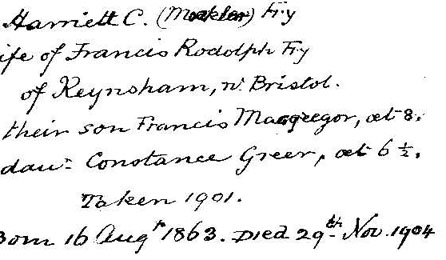 Harriett C. () Fry
ife of Francis Rodolph Fry
of Keynsham, nr Bristol.
their son Francis Macgregor, æt 8.
dau: Constance Greer, æt 6½.
Taken 1901.
Born 16 Augt 1863. Died 29th Nov. 1904